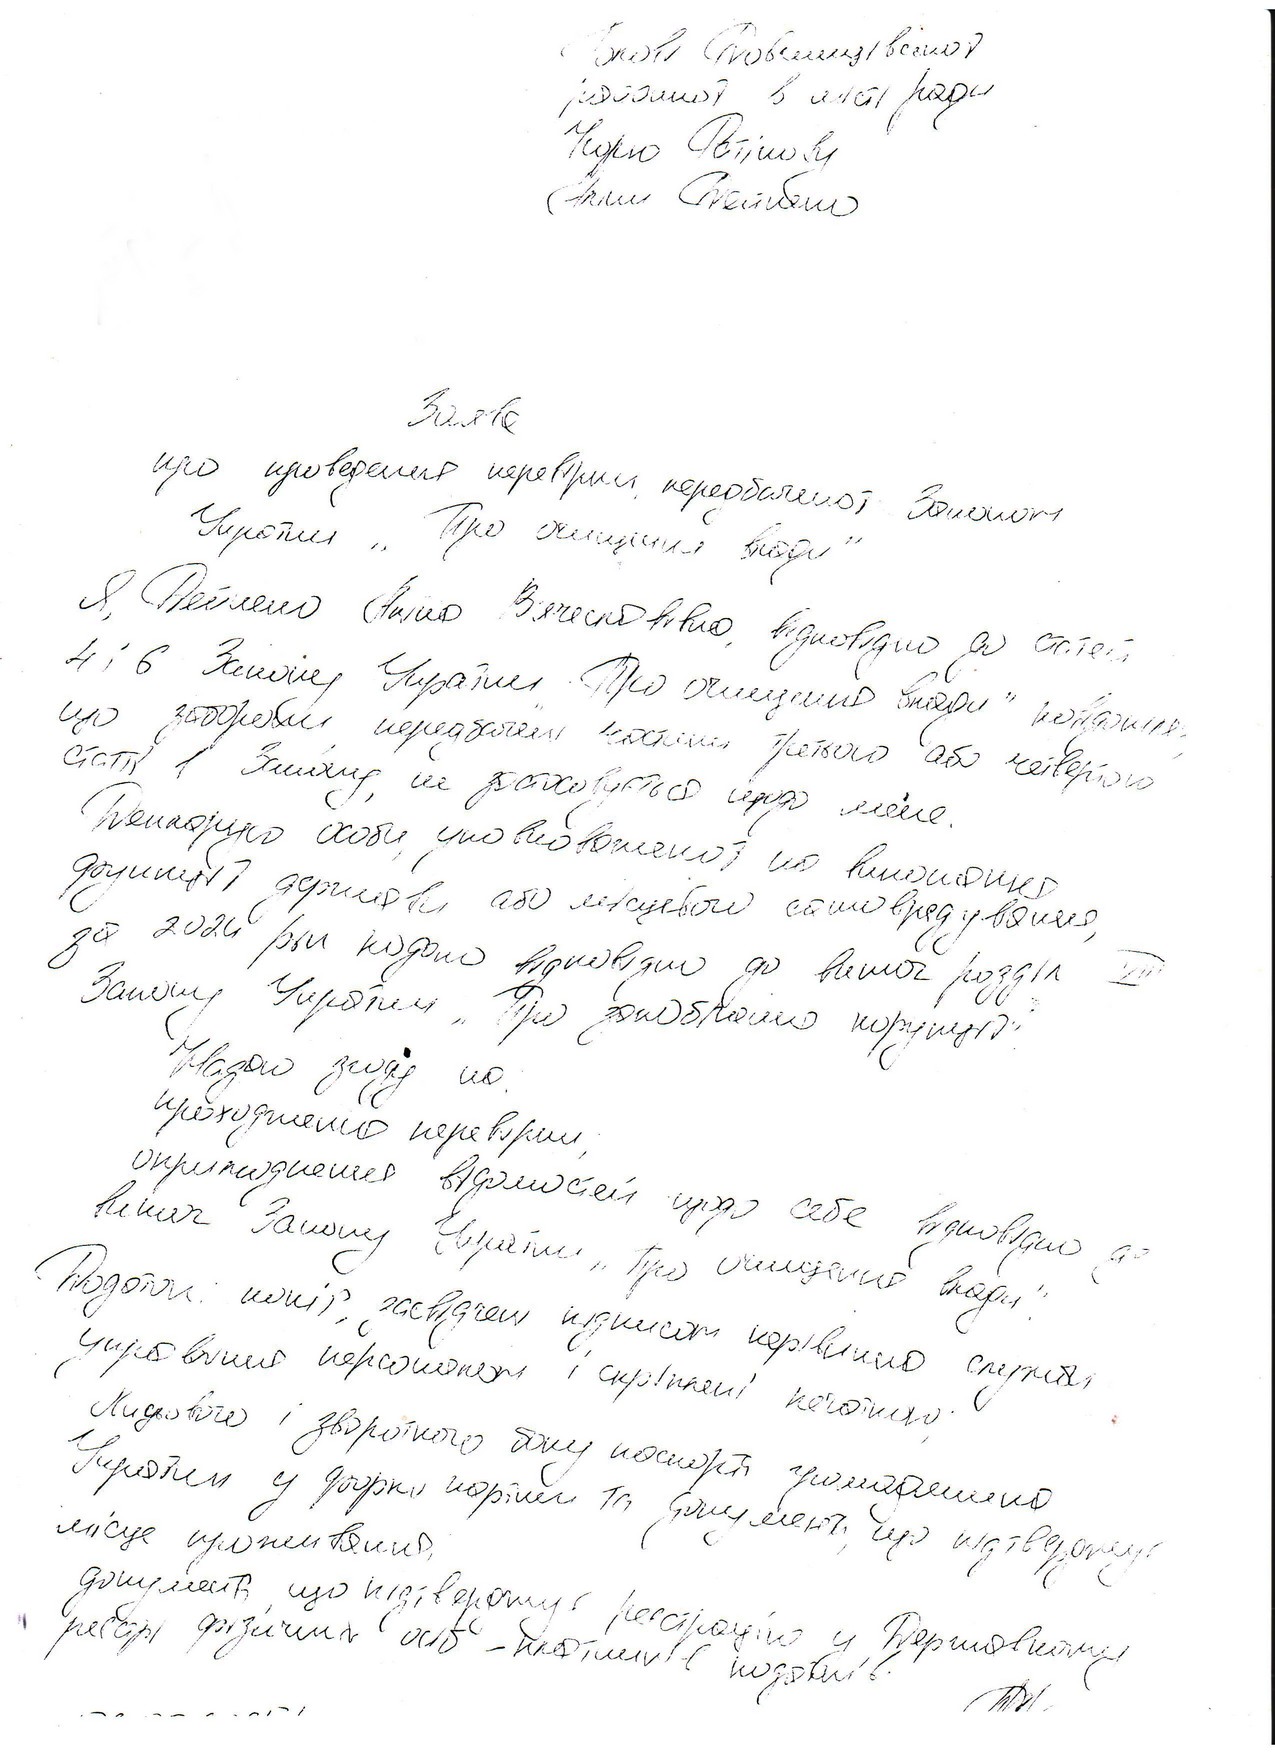 районної в місті ради
Заява
про проведення перевірки, передбаченої Законом
України „Про очищення влади"
Я, Анна Вячеславівна, відповідно до статей
4 і 6 Закону України „Про очищення влади" повідомляю,
що заборони передбачені частиною третьою або четвертою
статті 1 Закону, не застосовується щодо мене.
Декларацію особи, уповноваженої на виконання
функцій держави або місцевого самоврядування,
за рік подано відповідно до вимог розділу VII
Закону України „Про запобігання корупції".
Надаю згоду на:
проходження перевірки;
оприлюднення відомостей щодо себе відповідно до
вимог Закону України „Про очищення влади".
Додатки: копії, засвідчені підписом керівника служби
управління персоналом і скріплені печаткою:
лицьового і зворотного боку паспорта громадянина
України у формі картки та документа, що підтверджує
місце проживання;
документа, що підтверджує реєстрацію у Державному
реєстрі фізичних осіб – платників податків.